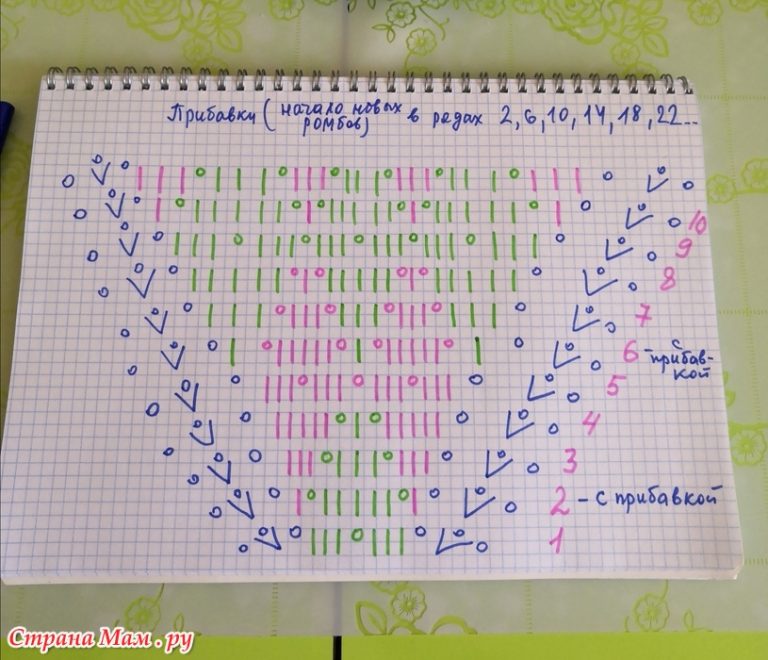 Прибавки ( начало новых ромбов) в редах 2, 6, 10, 14, 18, 22...
10
9
8
7
6 - с прибавкой
5
4
3
2 - с прибавкой
1
Страна Мам.ру